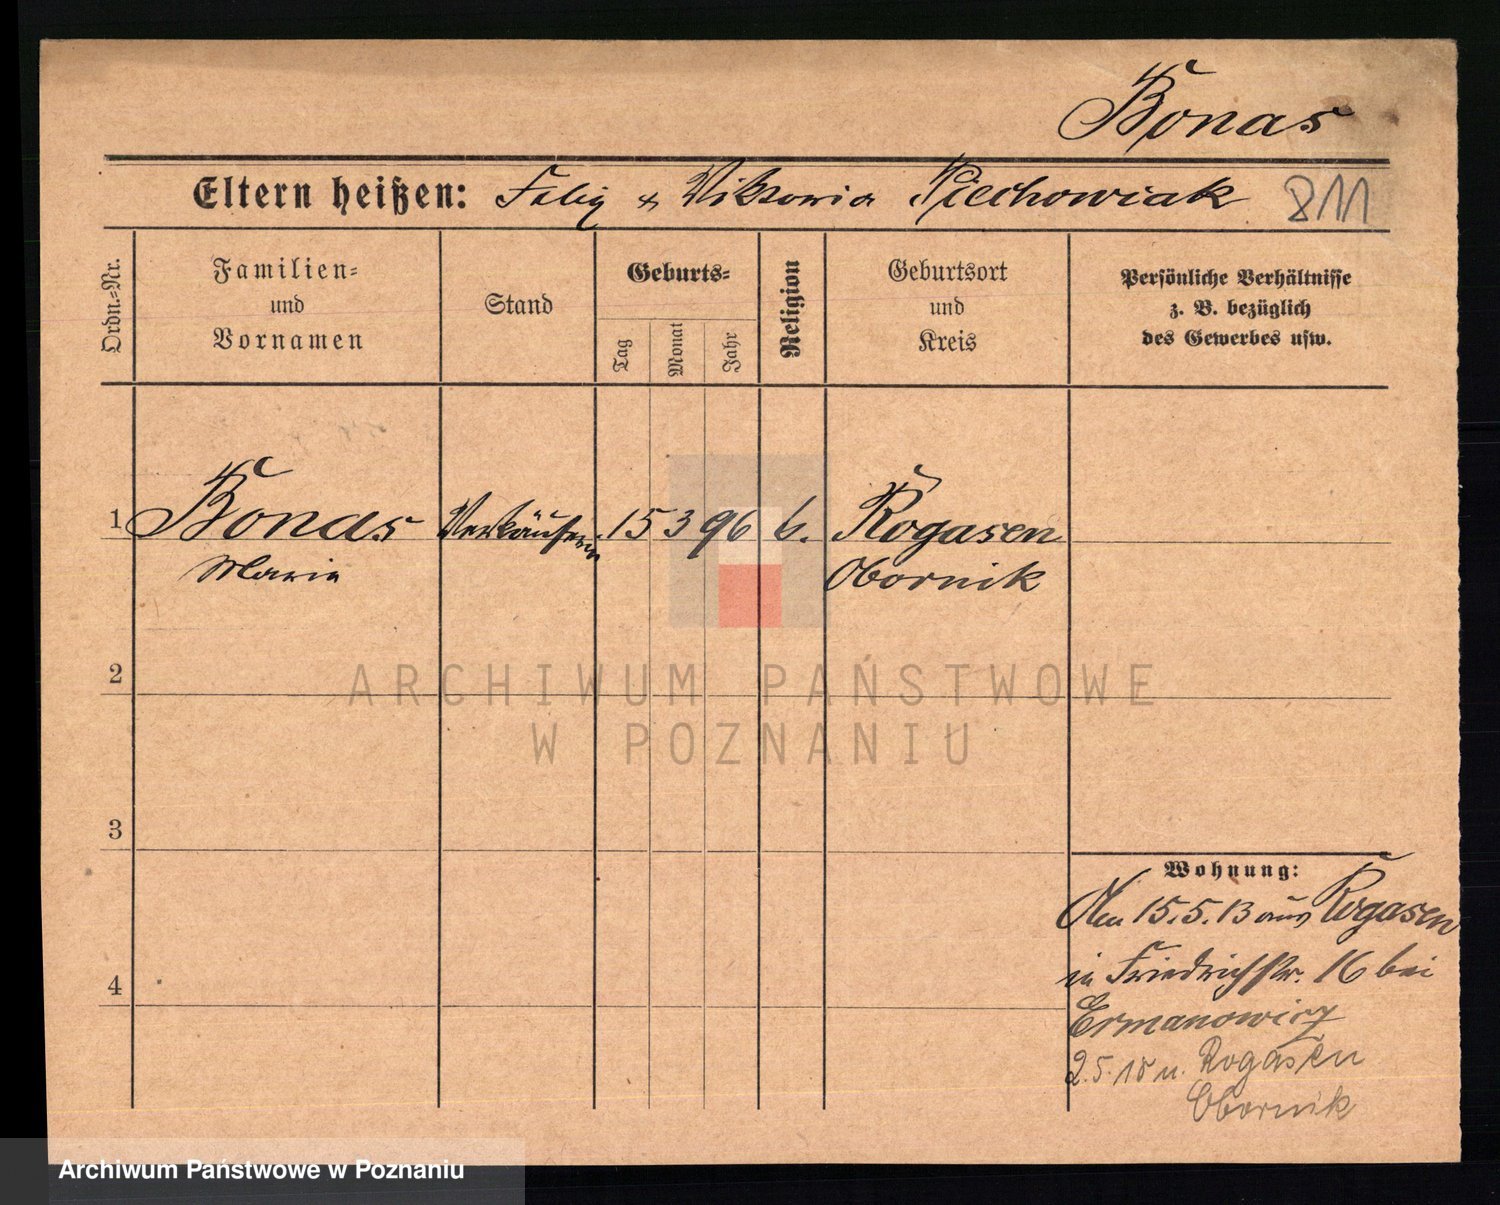 Bonas
Eltern heißen: Felix & Viktoria Piechowiak 811
Ordn.=Nr.
Familien=
und
Vornamen
Stand
Geburts=
Tag
Monat
Jahr
Religion
Geburtsort
und
Kreis
Persönliche Verhältnisse
z. B. bezüglich
des Gewerbes usw.
1 Bonas Verkäuferin 15 3 96 k. Rogasen
Maria Obornik
2
3
4
Wohnung:
Den 15.5.13 aus Rogasen
in Friedrichstr. 16 bei
Ermanowicz
2.5.18 n. Rogasen
Obornik
ARCHIWUM PAŃSTWOWE
W POZNANIU
Archiwum Państwowe w Poznaniu